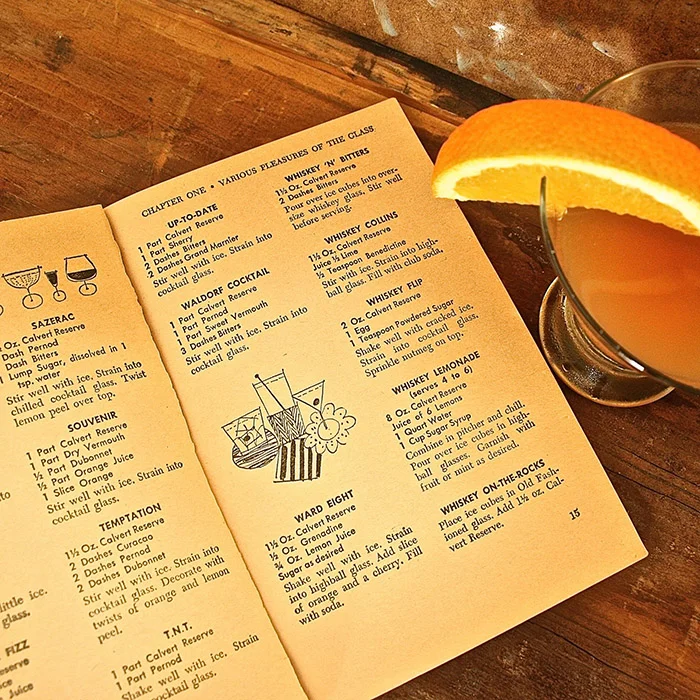 SAZERAC
Oz. Calvert Reserve
Dash Pernod
Dash Bitters
Lump Sugar, dissolved in 1
tsp. water
Stir well with ice. Strain into
chilled cocktail glass. Twist
lemon peel over top.
SOUVENIR
1 Part Calvert Reserve
1 Part Dry Vermouth
½ Part Dubonnet
½ Part Orange Juice
1 Slice Orange
Stir well with ice. Strain into
cocktail glass.
TEMPTATION
1½ Oz. Calvert Reserve
2 Dashes Curacao
2 Dashes Pernod
2 Dashes Dubonnet
Stir well with ice. Strain into
cocktail glass. Decorate with
twists of orange and lemon
peel.
T.N.T.
1 Part Calvert Reserve
1 Part Pernod
Shake well with ice. Strain
into cocktail glass.
little ice.
glass.
FIZZ
Reserve
Juice
CHAPTER ONE • VARIOUS PLEASURES OF THE GLASS
UP-TO-DATE
1 Part Calvert Reserve
1 Part Sherry
2 Dashes Bitters
2 Dashes Grand Marnier
Stir well with ice. Strain into
cocktail glass.
WALDORF COCKTAIL
1 Part Calvert Reserve
1 Part Pernod
1 Part Sweet Vermouth
3 Dashes Bitters
Stir well with ice. Strain into
cocktail glass.
WARD EIGHT
1½ Oz. Calvert Reserve
½ Oz. Grenadine
¾ Oz. Lemon Juice
Sugar as desired
Shake well with ice. Strain
into highball glass. Add slice
of orange and a cherry. Fill
with soda.
WHISKEY 'N' BITTERS
1½ Oz. Calvert Reserve
2 Dashes Bitters
Pour over ice cubes into over-
size whiskey glass. Stir well
before serving.
WHISKEY COLLINS
1½ Oz. Calvert Reserve
Juice ½ Lime
½ Teaspoon Benedictine
Stir with ice. Strain into high-
ball glass. Fill with club soda.
WHISKEY FLIP
2 Oz. Calvert Reserve
1 Egg
1 Teaspoon Powdered Sugar
Shake well with cracked ice.
Strain into cocktail glass.
Sprinkle nutmeg on top.
WHISKEY LEMONADE
(serves 4 to 6)
8 Oz. Calvert Reserve
Juice of 6 Lemons
1 Quart Water
1 Cup Sugar Syrup
Combine in pitcher and chill.
Pour over ice cubes in high-
ball glasses. Garnish with
fruit or mint as desired.
WHISKEY ON-THE-ROCKS
Place ice cubes in Old Fash-
ioned glass. Add 1½ oz. Cal-
vert Reserve.
15